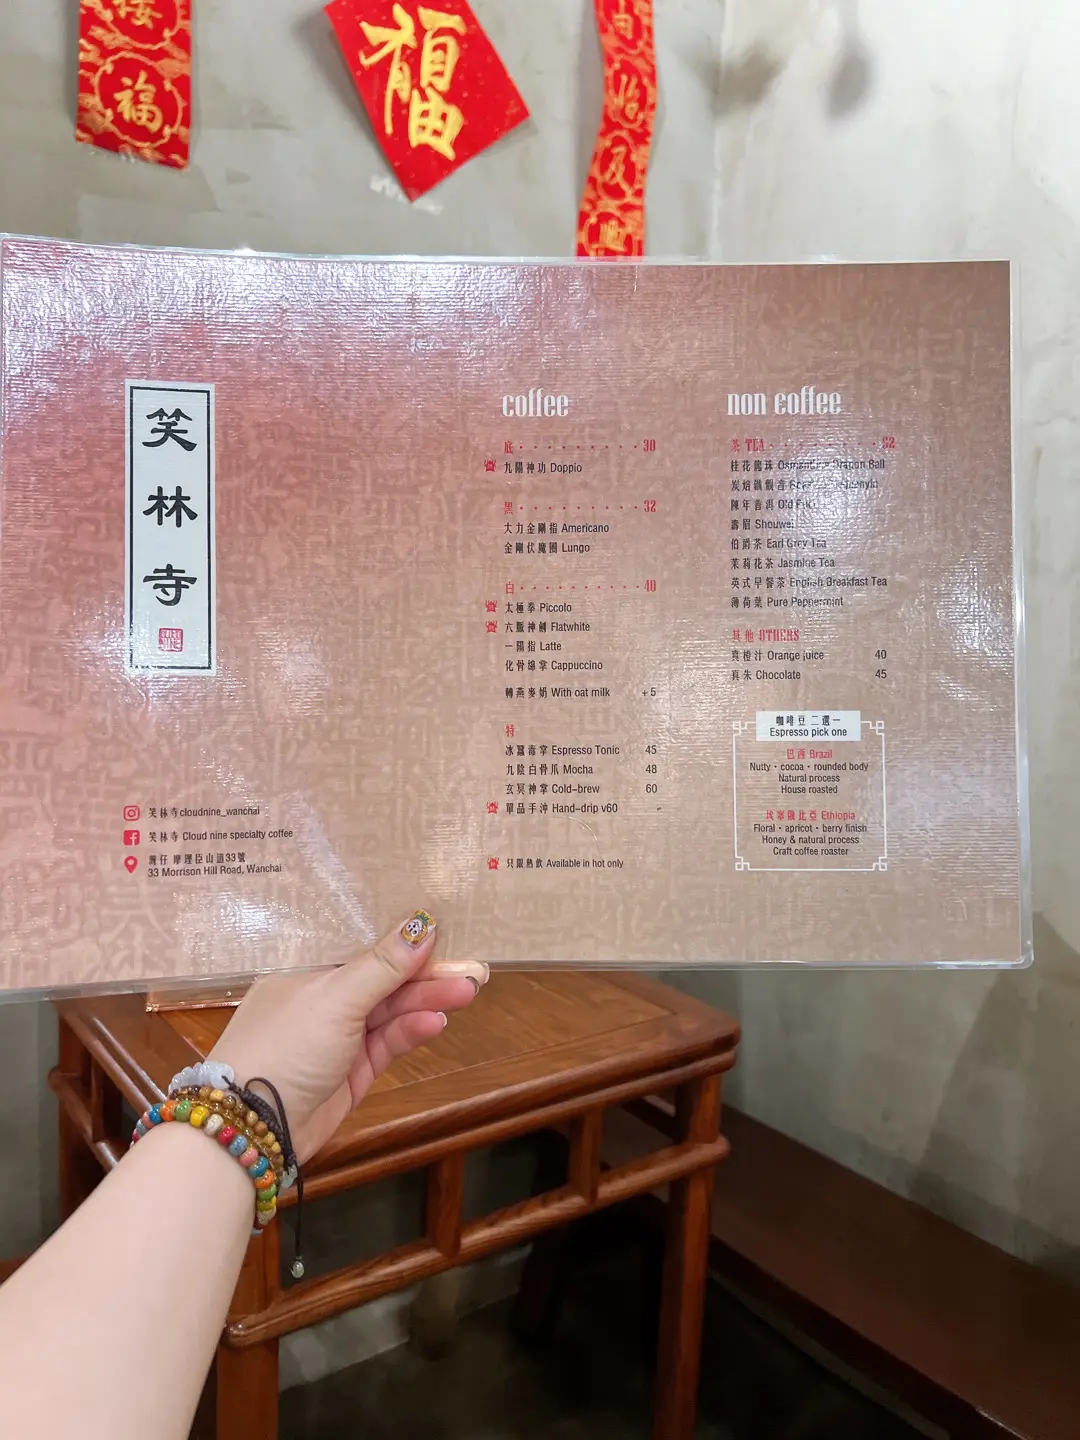 福
福
笑
林
寺
笑林寺cloudnine_wanchai
笑林寺 Cloud nine specialty coffee
灣仔 摩理臣山道33號
33 Morrison Hill Road, Wanchai
coffee
底 · · · · · · · · · 30
九陽神功 Doppio
黑 · · · · · · · · · 32
大力金剛指 Americano
金剛伏魔圈 Lungo
白 · · · · · · · · · · 40
太極拳 Piccolo
六脈神劍 Flatwhite
一陽指 Latte
化骨綿掌 Cappuccino
轉燕麥奶 With oat milk +5
特
冰蠶毒掌 Espresso Tonic 45
九陰白骨爪 Mocha 48
玄冥神掌 Cold-brew 60
單品手沖 Hand-drip v60 -
只限熱飲 Available in hot only
non coffee
茶 TEA · · · · · · · · 52
桂花龍珠 Osmanthus Dragon Ball
炭焙鐵觀音
陳年普洱 Old
壽眉 Shoumei
伯爵茶 Earl Grey Tea
茉莉花茶 Jasmine Tea
英式早餐茶 English Breakfast Tea
薄荷葉 Pure Peppermint
其他 OTHERS
真橙汁 Orange juice 40
真朱 Chocolate 45
咖啡豆 二選一
Espresso pick one
巴西 Brazil
Nutty · cocoa · rounded body
Natural process
House roasted
埃塞俄比亞 Ethiopia
Floral · apricot · berry finish
Honey & natural process
Craft coffee roaster